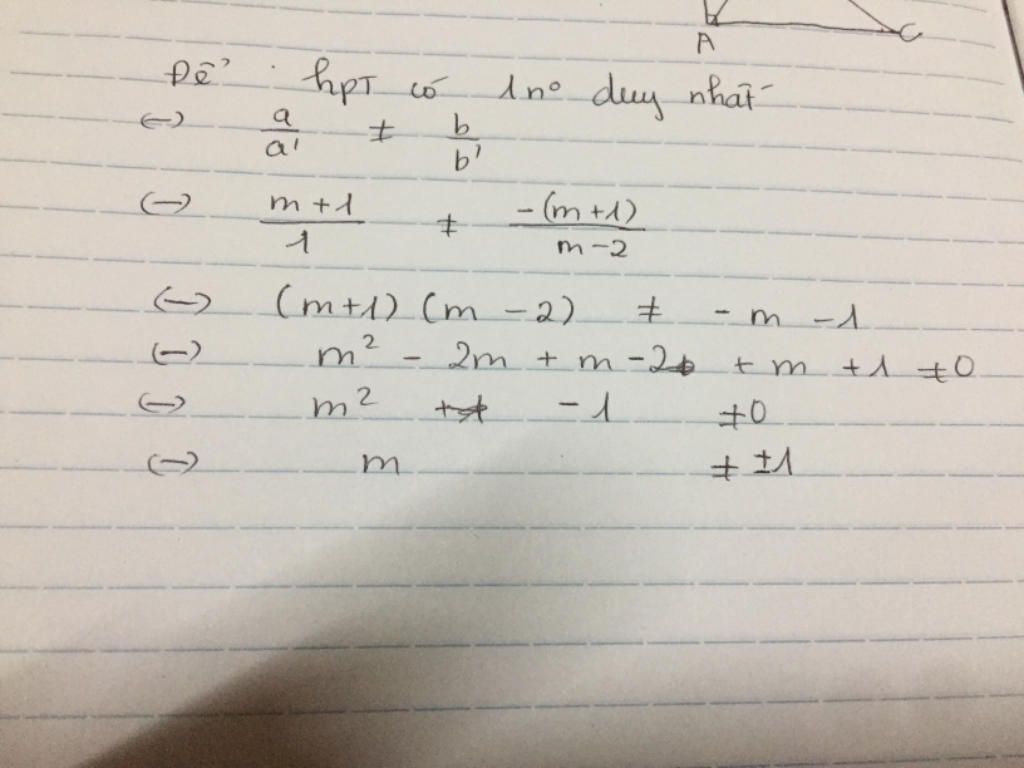 A C
Để hpT có 1 n° duy nhất
<-> a/a' ≠ b/b'
<-> (m+1)/1 ≠ -(m+1)/(m-2)
<-> (m+1) (m - 2) ≠ - m - 1
<-> m² - 2m + m - 2 + m + 1 ≠ 0
<-> m² - 1 ≠ 0
<-> m ≠ ±1